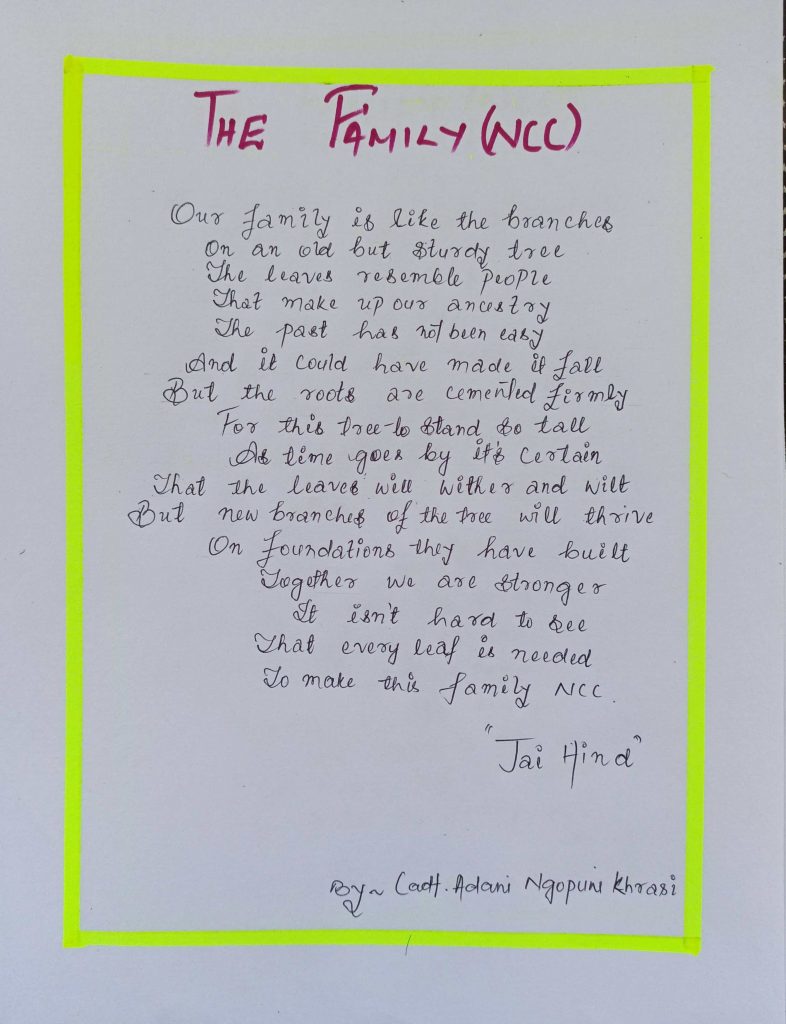 THE FAMILY (NCC)
Our family is like the branches
On an old but sturdy tree
The leaves resemble people
That make up our ancestry
The past has not been easy
And it could have made it fall
But the roots are cemented firmly
For this tree to stand so tall
As time goes by it's certain
That the leaves will wither and wilt
But new branches of the tree will thrive
On foundations they have built
Together we are stronger
It isn't hard to see
That every leaf is needed
To make this family NCC.
"Jai Hind"
By~ Cadt. Adani Ngopuni Khrasi